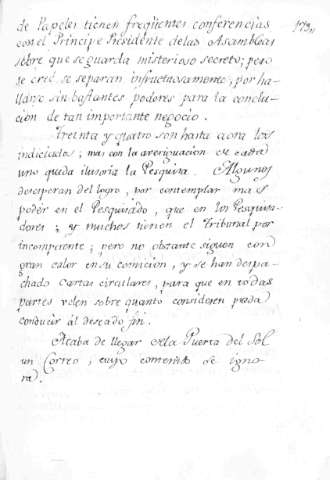 de Papeles tienen freqüentes conferencias
con el Principe Presidente de las Asambleas
sobre que se guarda misterioso secreto; pero
se cree se separan infructuosamente, por ha-
llarse sin bastantes poderes para la conclu-
ción de tan importante negocio.
Treinta y quatro son hasta aora los
indiciados; mas con la averiguacion de cada
uno queda ilusoria la Pesquisa. Algunos
desesperan del logro, por contemplar mas
podér en el Pesquisado, que en los Pesquisa-
dores; y muchos tienen el Tribunal por
incompetente; pero no obstante siguen con
gran calor en su comicion, y se han despa-
chado Cartas circulares, para que en todas
partes velen sobre quanto consideren pueda
conducir al deseado fin.
Acaba de llegar á la Puerta del Sol
un Correo, cuyo contenido se igno-
ra.